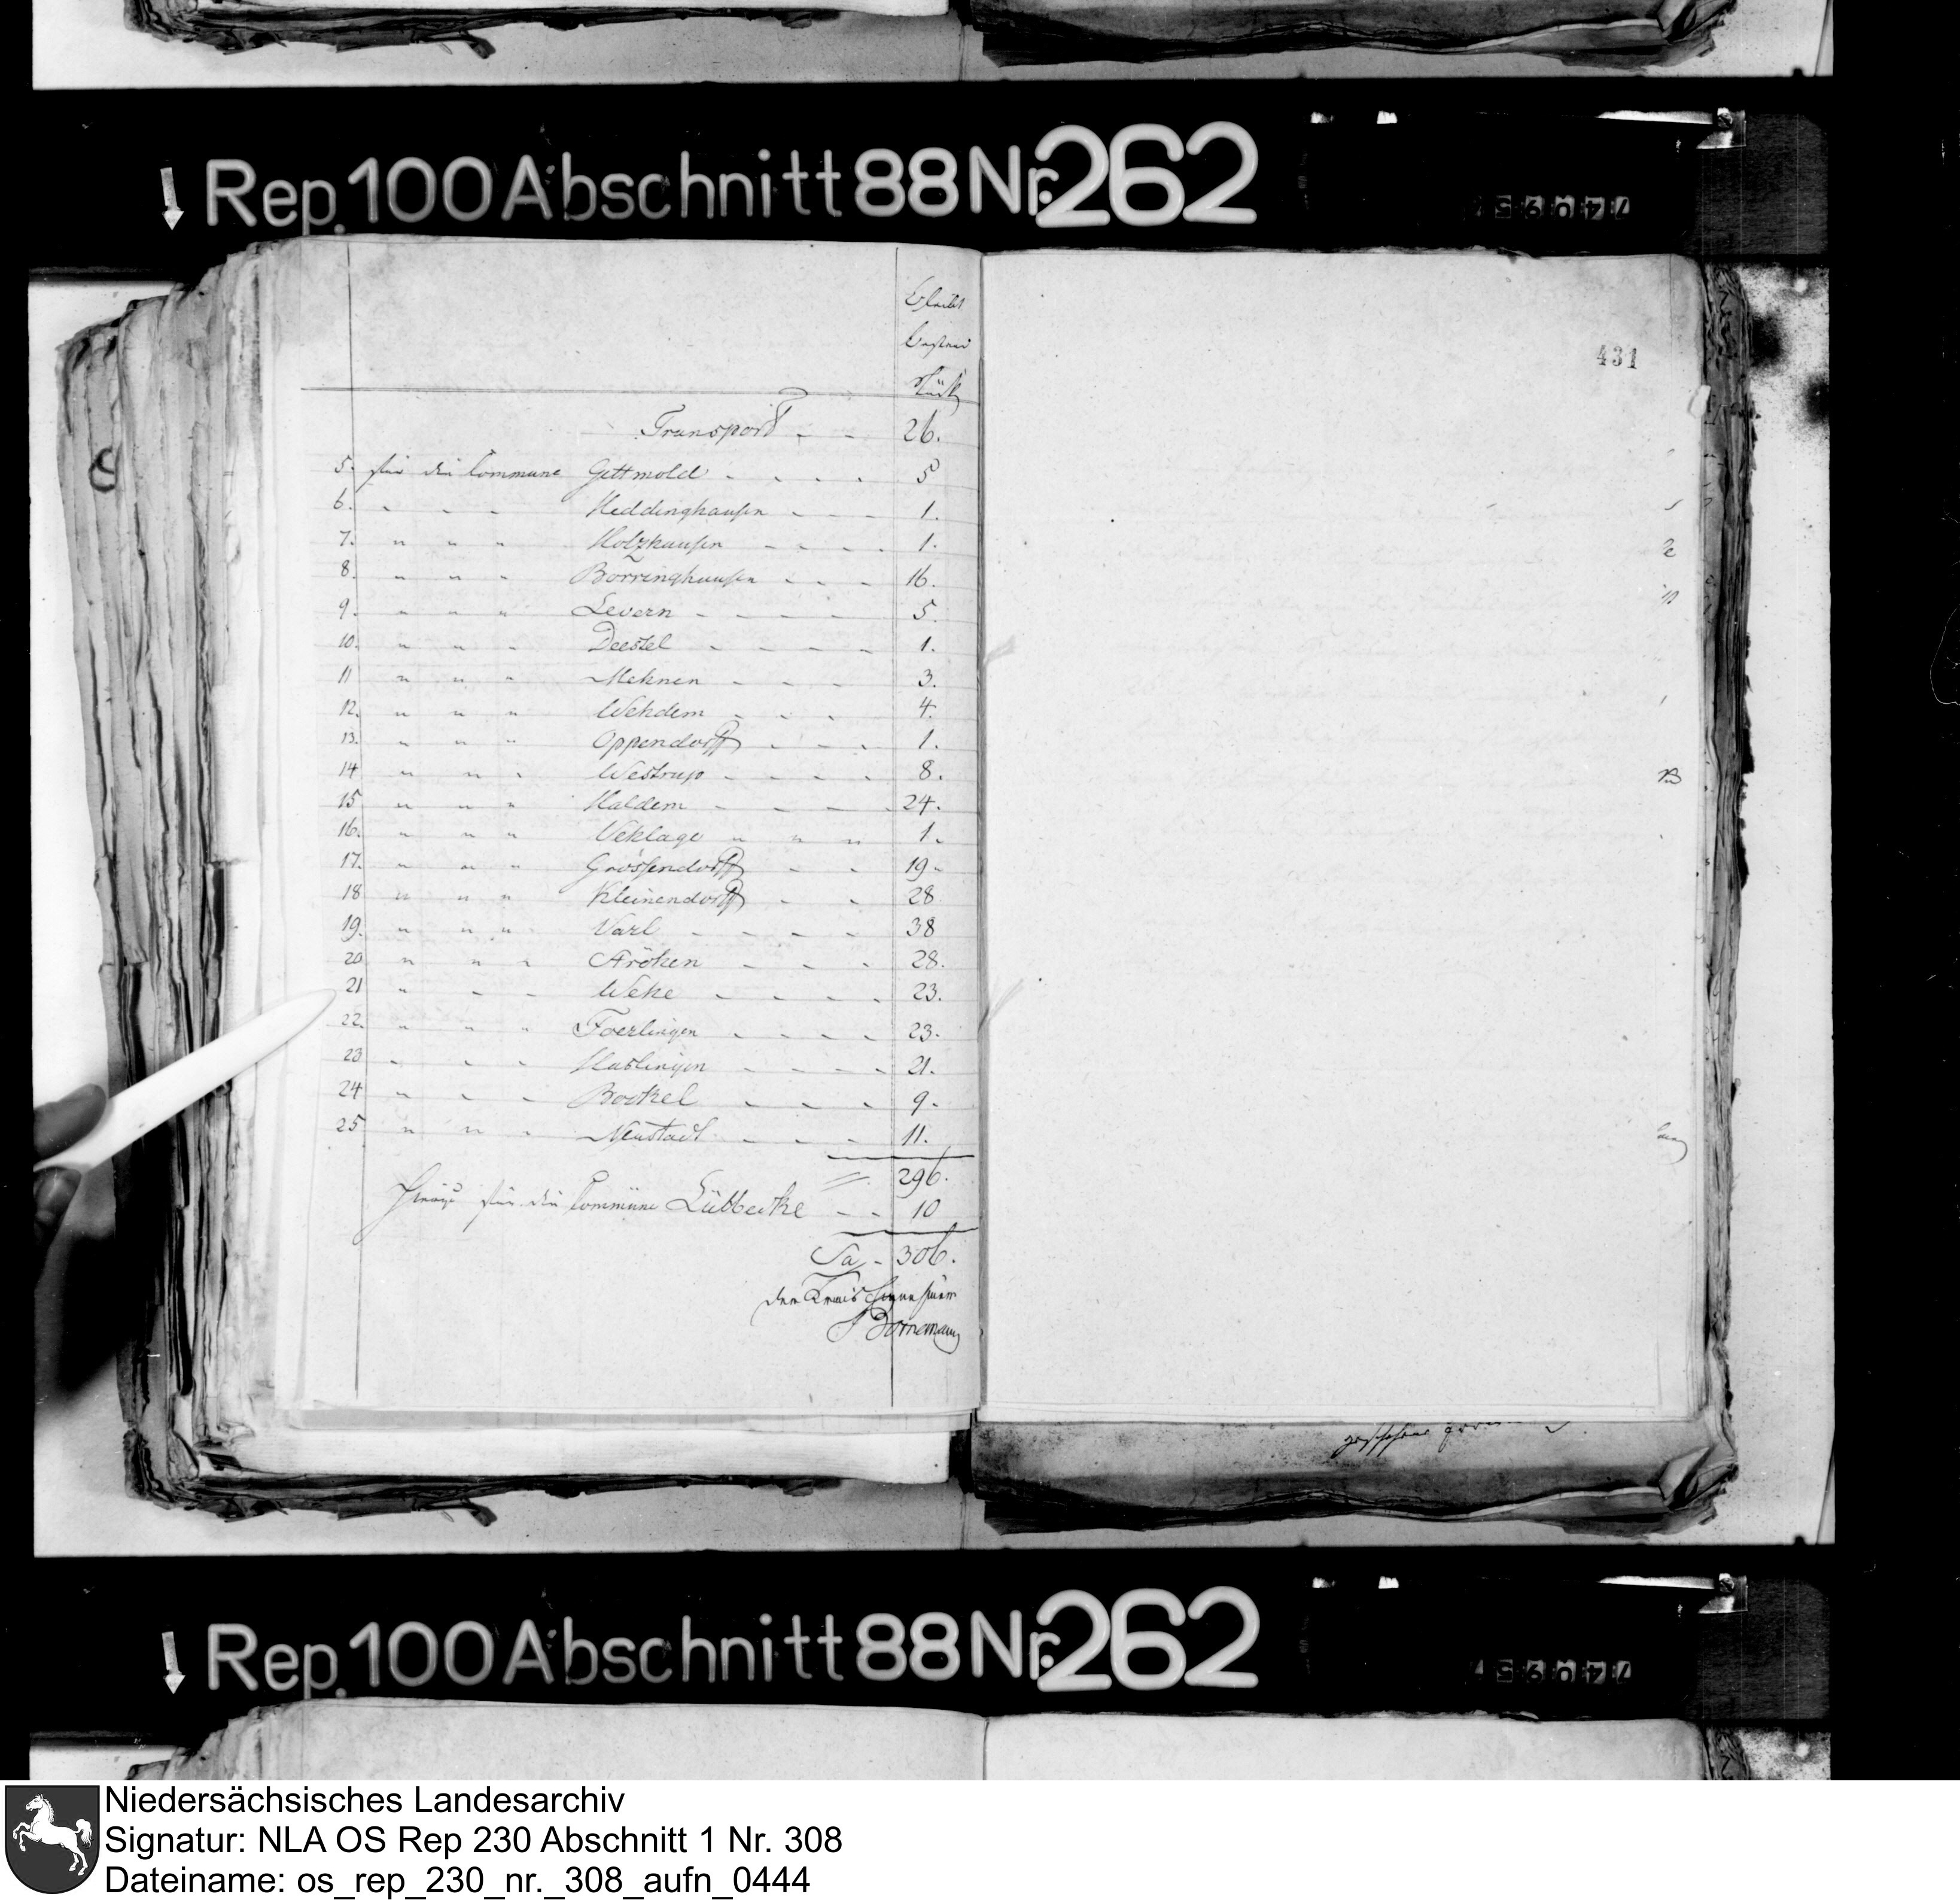 Rep. 100 Abschnitt 88 Nr. 262
bleibt
Bestand
Stück
431
Transport - - 26.
5. für die Commune Gettmold - - - - 5
6. - - - Heddinghausen - - - 1.
7. " " " Holzhausen - - - - 1.
8. " " " Börringhausen - - - 16.
9. " " " Levern - - - - 5.
10. " " " Destel - - - - 1.
11 " " " Mehnen - - - 3.
12. " " " Wehdem - - - 4.
13. " " " Oppendorff - - - 1.
14 " " " Westrup - - - - 8.
15 " " " Haldem - - - - 24.
16. " " " Vehlage " " " 1.
17. " " " Grössendorff - - 19-
18 " " " Kleinendorff - - 28
19. " " " Varl - - - - 38
20 " " " Ströhen - - - 28.
21 " - - Wehe - - - - 23.
22. " " " - - - - 23.
23 - - - - - - - 21.
24 " - - Bockel - - - 9.
25 " " - Neustadt - - - 11.
296.
für die Commüne Lübbecke - - 10
Sa - 306.
der Kreis
Bornemann
Rep. 100 Abschnitt 88 Nr. 262
Niedersächsisches Landesarchiv
Signatur: NLA OS Rep 230 Abschnitt 1 Nr. 308
Dateiname: os_rep_230_nr._308_aufn_0444